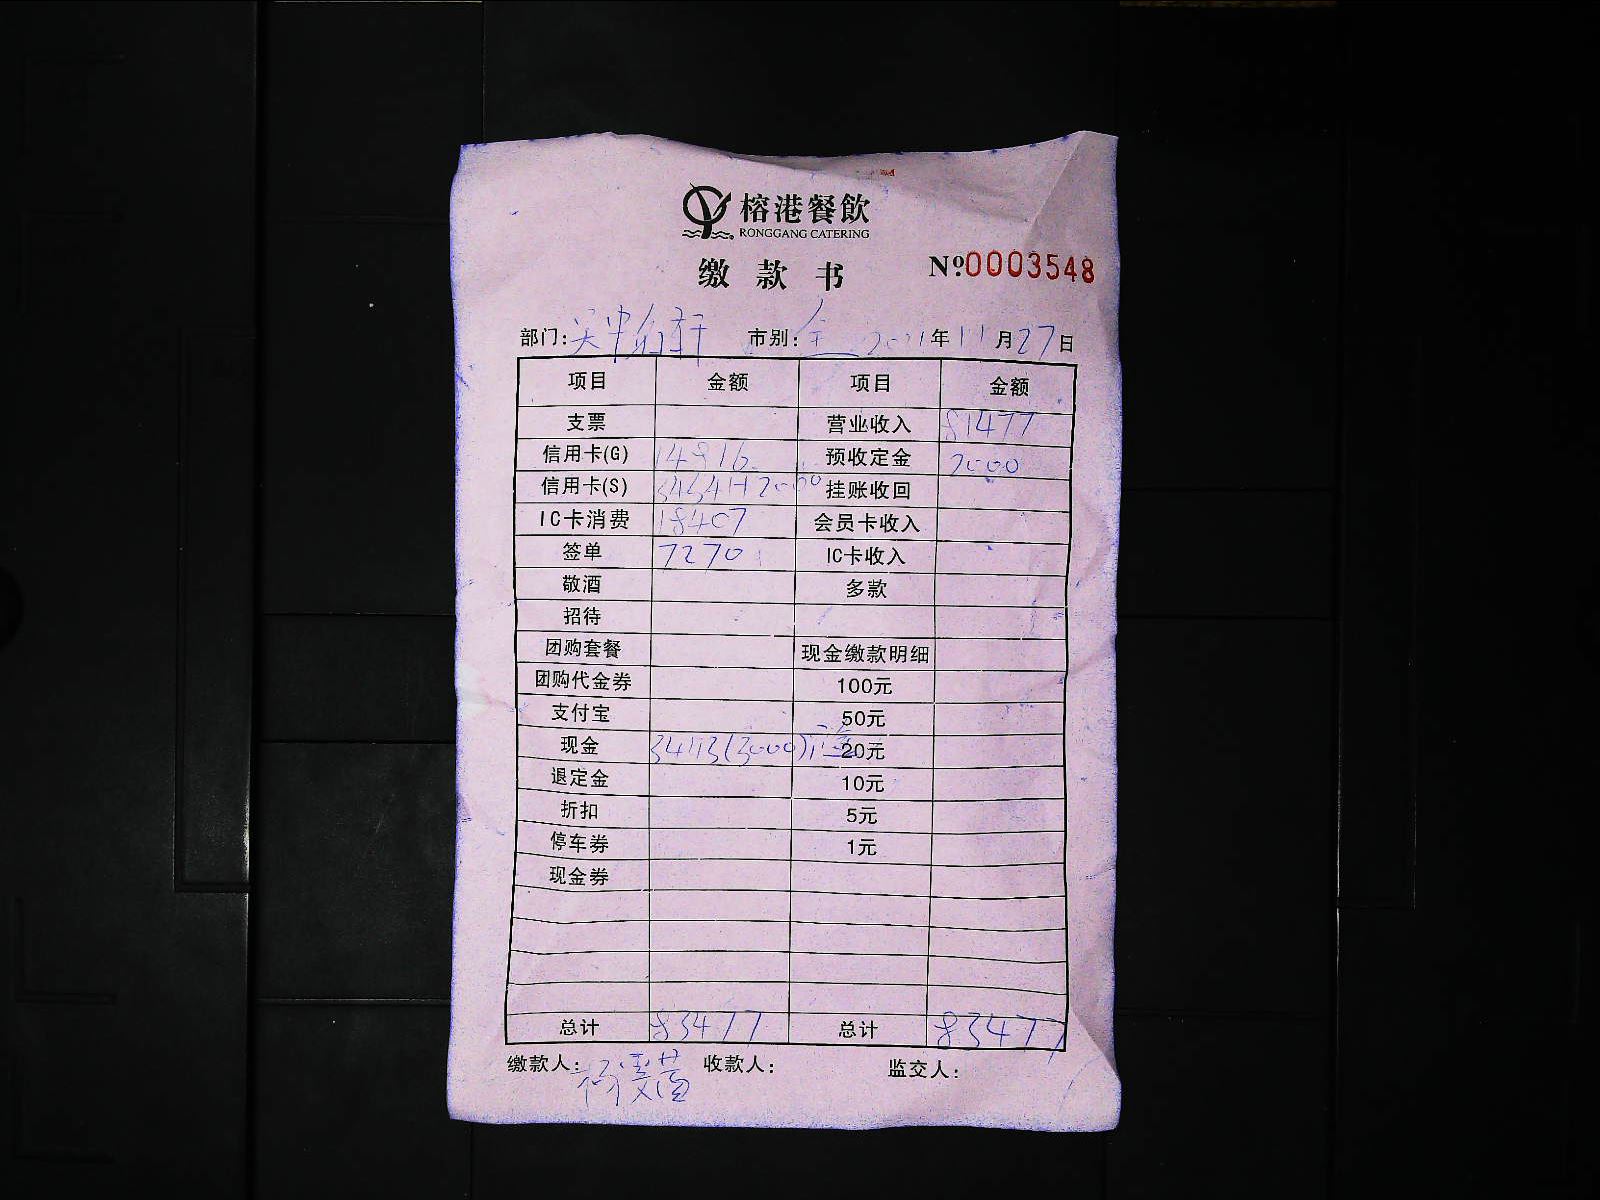 榕港餐飲
RONGGANG CATERING
缴款书 Nº0003548
部门: 市别:全 2021年11月27日
项目 金额 项目 金额
支票 营业收入 81477
信用卡(G) 14916 预收定金 2000
信用卡(S) 挂账收回
IC卡消费 18407 会员卡收入
签单 7270 IC卡收入
敬酒 多款
招待
团购套餐 现金缴款明细
团购代金券 100元
支付宝 50元
现金 20元
退定金 10元
折扣 5元
停车券 1元
现金券
总计 83477 总计 83477
缴款人: 收款人: 监交人: